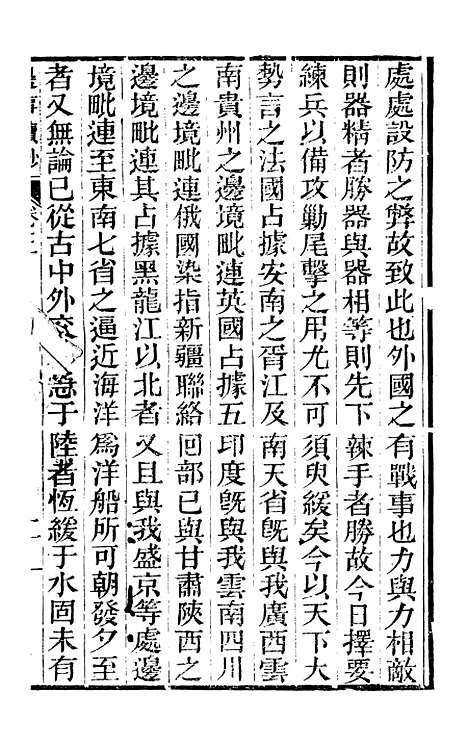 處處設防之弊故致此也外國之有戰事也力與力相敵
則器精者勝器與器相等則先下辣手者勝故今日擇要
練兵以備攻勦尾擊之用尤不可須臾緩矣今以天下大
勢言之法國占據安南之胥江及南天省旣與我廣西雲
南貴州之邊境毗連英國占據五印度旣與我雲南四川
之邊境毗連俄國染指新疆聯絡回部已與甘肅陝西之
邊境毗連其占據黑龍江以北者又且與我盛京等處邊
境毗連至東南七省之逼近海洋爲洋船所可朝發夕至
者又無論已從古中外交急于陸者恆緩于水固未有